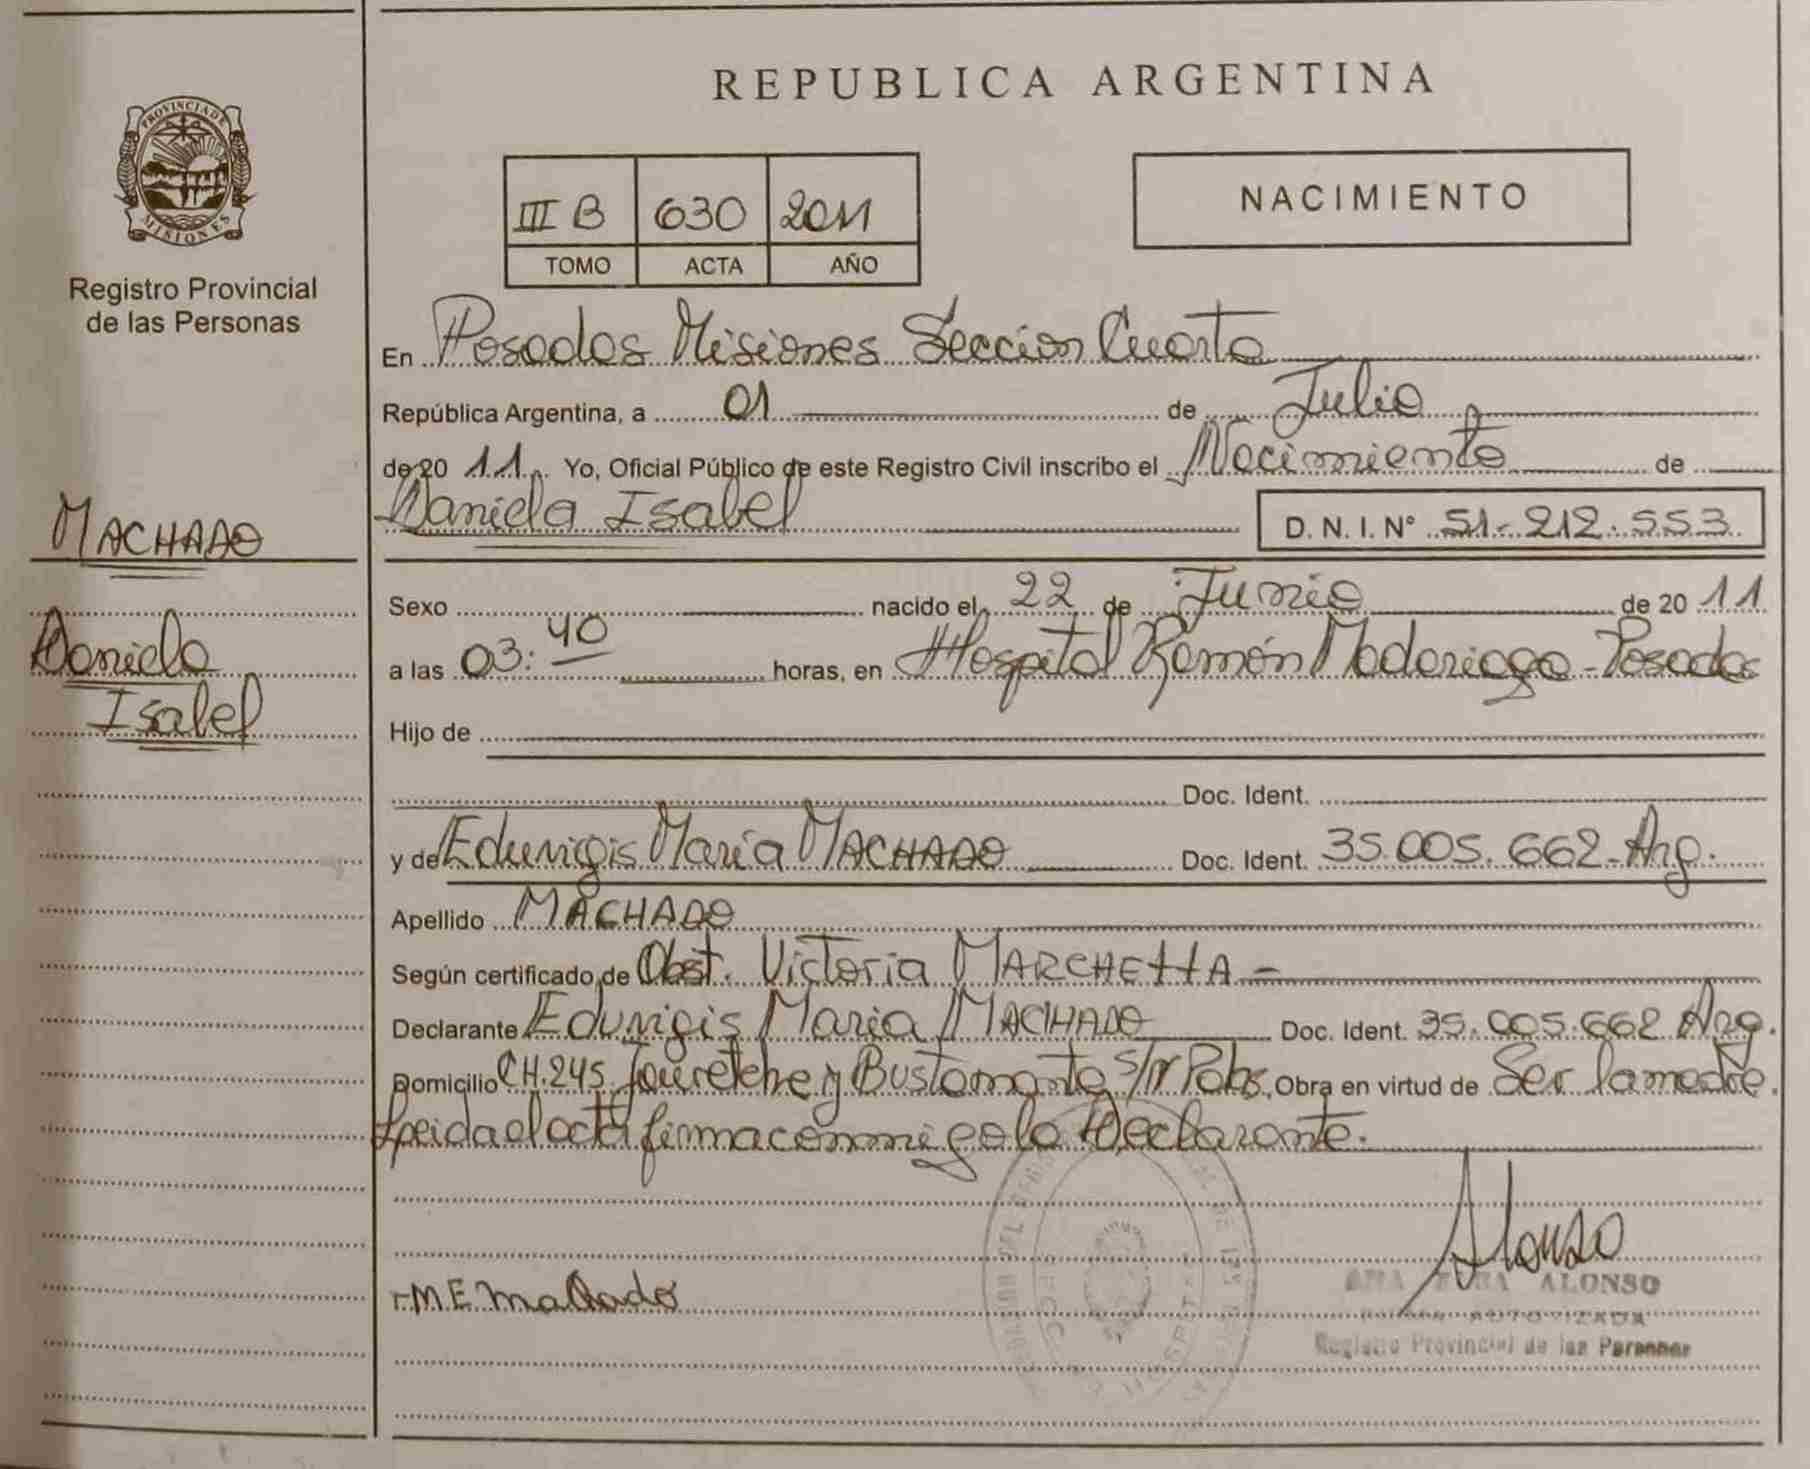 REPUBLICA ARGENTINA
PROVINCIA DE
MISIONES
Registro Provincial
de las Personas
III B 630 2011
TOMO ACTA AÑO
NACIMIENTO
En Posadas Misiones Sección Cuarta
República Argentina, a 01 de Julio
de 20 11 Yo, Oficial Público de este Registro Civil inscribo el Nacimiento de
Daniela Isabel D. N. I. N° 51-212.553
MACHADO
Daniela
Isabel
Sexo nacido el 22 de Junio de 20 11
a las 03:40 horas, en Hospital Ramón Madariaga-Posadas
Hijo de
Doc. Ident.
y de Eduvigis María MACHADO Doc. Ident. 35.005.662-Arg.
Apellido MACHADO
Según certificado de Obst. Victoria MARCHETTA -
Declarante Eduvigis María MACHADO Doc. Ident. 35.005.662 Arg.
Domicilio CH.245 y Bustamante s/n Pdas, Obra en virtud de Ser la madre.
Leida el acta firma conmigo la Declarante.
Alonso
M E Machado
ALONSO
Registro Provincial de las Personas